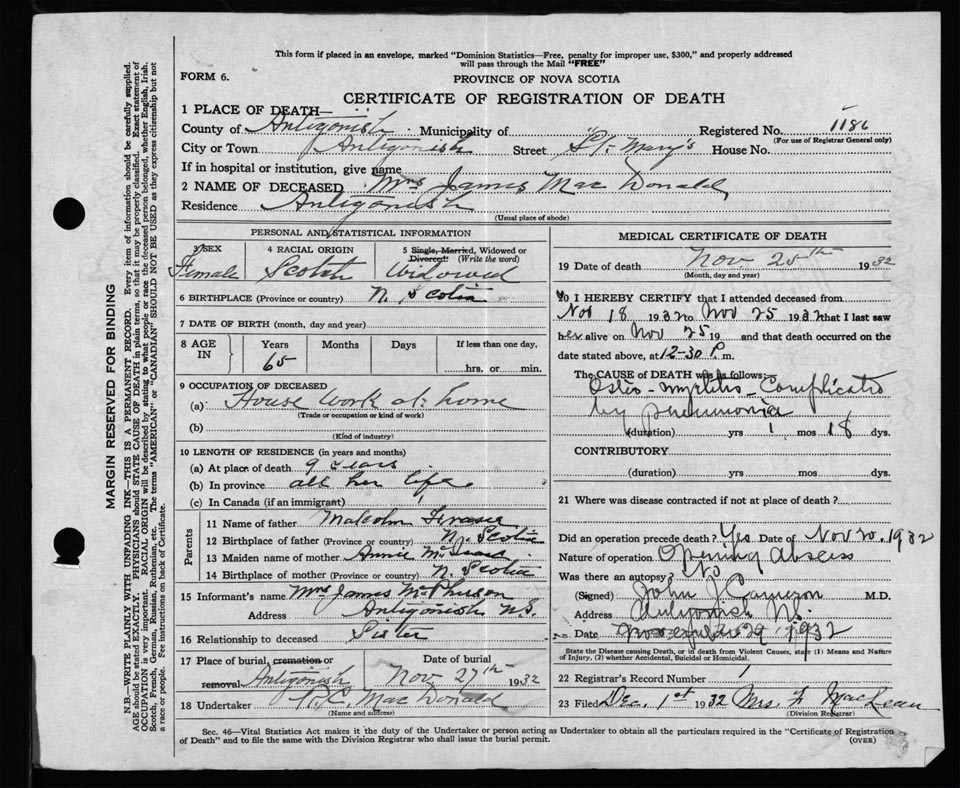 This form if placed in an envelope, marked "Dominion Statistics—Free, penalty for improper use, $300," and properly addressed
will pass through the Mail "FREE"
FORM 6.
PROVINCE OF NOVA SCOTIA
CERTIFICATE OF REGISTRATION OF DEATH
1 PLACE OF DEATH—
County of Antigonish Municipality of Registered No. 1186
(For use of Registrar General only)
City or Town Antigonish Street St. Mary's House No.
If in hospital or institution, give name
2 NAME OF DECEASED Mrs James Mac Donald
Residence Antigonish
(Usual place of abode)
PERSONAL AND STATISTICAL INFORMATION
3 SEX 4 RACIAL ORIGIN 5 Single, Married, Widowed or Divorced? (Write the word)
Female Scotch Widowed
6 BIRTHPLACE (Province or country) N. Scotia
7 DATE OF BIRTH (month, day and year)
8 AGE IN Years Months Days If less than one day,
65 hrs. or min.
9 OCCUPATION OF DECEASED
(a) House work at home
(Trade or occupation or kind of work)
(b)
(Kind of industry)
10 LENGTH OF RESIDENCE (in years and months)
(a) At place of death 9 years
(b) In province all her life
(c) In Canada (if an immigrant)
Parents
11 Name of father Malcolm Fraser
12 Birthplace of father (Province or country) N. Scotia
13 Maiden name of mother Annie McIsaac
14 Birthplace of mother (Province or country) N. Scotia
15 Informant's name Mrs James McPherson
Address Antigonish N.S.
16 Relationship to deceased Sister
17 Place of burial, cremation or removal Date of burial
Antigonish Nov 27th 1932
18 Undertaker MacDonald
(Name and address)
MEDICAL CERTIFICATE OF DEATH
19 Date of death Nov 25th 1932
(Month, day and year)
20 I HEREBY CERTIFY that I attended deceased from
Nov 18 1932 to Nov 25 1932 that I last saw
her alive on Nov 25 19 and that death occurred on the
date stated above, at 12-30 P. m.
The CAUSE OF DEATH was as follows:
Osteo-myelitis - Complicated
by pneumonia
(duration) yrs 1 mos 18 dys.
CONTRIBUTORY
(duration) yrs. mos. dys.
21 Where was disease contracted if not at place of death?
Did an operation precede death? Yes Date of Nov 20. 1932
Nature of operation Opening Abscess
Was there an autopsy? No
(Signed) John J Cameron M.D.
Address Antigonish N.S.
Date November 29 1932
State the Disease causing Death, or in death from Violent Causes, state (1) Means and Nature
of Injury, (2) whether Accidental, Suicidal or Homicidal.
22 Registrar's Record Number 1
23 Filed Dec. 1st 1932 Mrs. F. MacLean
(Division Registrar)
Sec. 46—Vital Statistics Act makes it the duty of the Undertaker or person acting as Undertaker to obtain all the particulars required in the "Certificate of Registration
of Death" and to file the same with the Division Registrar who shall issue the burial permit.
(OVER)
MARGIN RESERVED FOR BINDING
N.B.—WRITE PLAINLY WITH UNFADING INK—THIS IS A PERMANENT RECORD. Every item of information should be carefully supplied.
AGE should be stated EXACTLY. PHYSICIANS should STATE CAUSE OF DEATH in plain terms, so that it may be properly classified. Exact statement of
OCCUPATION is very important. RACIAL ORIGIN will be described by stating to what people or race the deceased person belonged, whether English, Irish,
Scotch, French, German, Russian, Ruthenian, etc. The terms "AMERICAN" or "CANADIAN" SHOULD NOT BE USED as they express citizenship but not
a race or people. Fee instructions on back of Certificate.